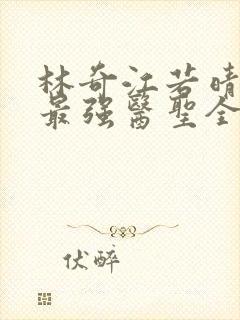 林奇江若晴
最强醫聖全
伏醉